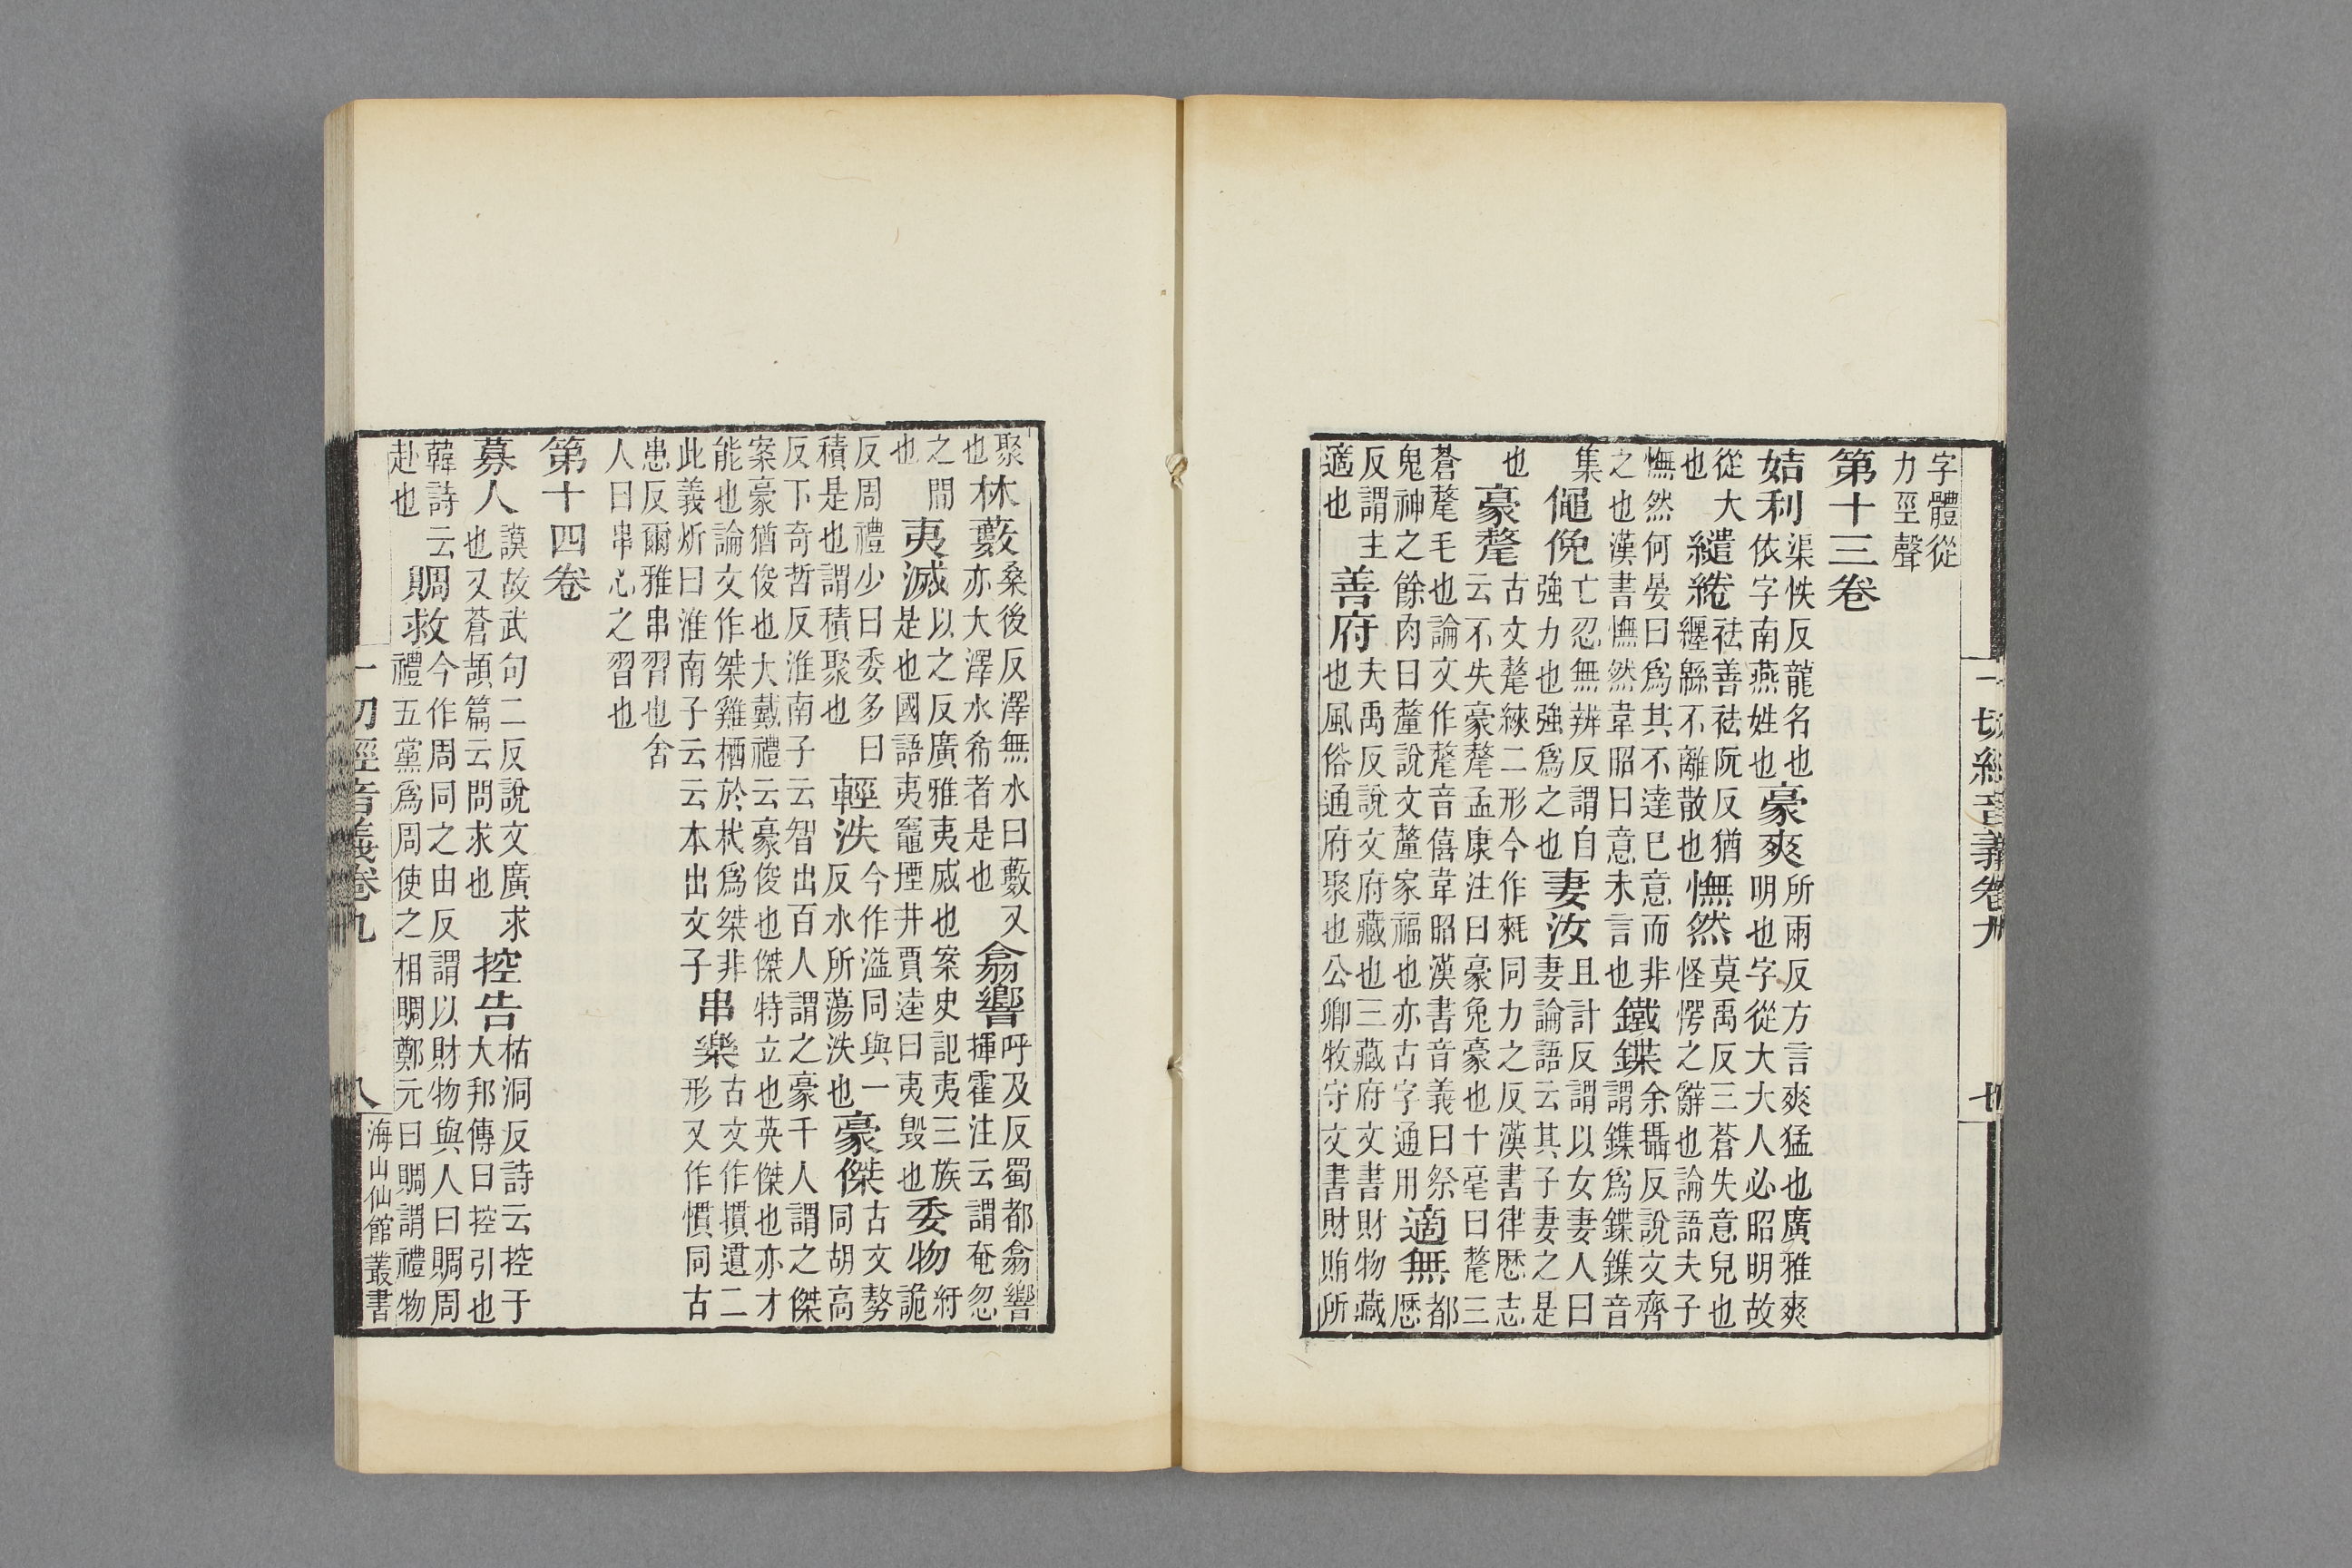 一切經音義卷九　七
字體從力巠聲
第十三卷
姞利渠怢反龍名也依字南燕姓也豪爽所兩反方言爽猛也廣雅爽明也字從大大人必昭明故
從大也繾綣袪善袪阮反猶纒緜不離散也憮然莫禹反三蒼失意皃也怪愕之辭也論語夫子
憮然何晏曰爲其不達巳意而非之也漢書憮然韋昭曰意未言也鐵鍱余攝反說文齊謂鏶爲鍱鏶音
集僶俛亡忍無辨反謂自強力也強爲之也妻汝且計反謂以女妻人曰妻論語云其子妻之是
也豪氂古文氂練二形今作耗同力之反漢書律厯志云不失豪氂孟康注曰豪兔豪也十毫曰氂三
蒼氂毛也論文作氂音僖韋昭漢書音義曰祭鬼神之餘肉曰釐說文釐家福也亦古字通用適無都厯
反謂主適也善府夫禹反說文府藏也三藏府文書財物藏也風俗通府聚也公卿牧守文書財賄所
聚也林藪桑後反澤無水曰藪又亦大澤水希者是也翕響呼及反蜀都翕響揮霍注云謂奄忽
之間也夷滅以之反廣雅夷烕也案史記夷三族是也國語夷竈堙井賈逵曰夷毀也委物紆詭
反周禮少曰委多曰積是也謂積聚也輕泆今作溢同與一反水所蕩泆也豪傑古文勢同胡高
反下奇哲反淮南子云智出百人謂之豪千人謂之傑案豪猶俊也大戴禮云豪俊也傑特立也英傑也亦才
能也論文作桀雞栖於杙爲桀非此義炘曰淮南子云云本出文子串樂古文作摜遦二形又作慣同古
患反爾雅串習也舍人曰串心之習也
第十四卷
募人謨故武句二反說文廣求也又蒼頡篇云問求也控告枯洞反詩云控于大邦傳曰控引也
韓詩云赴也賙救今作周同之由反謂以財物與人曰賙周禮五黨爲周使之相賙鄭元曰賙謂禮物
一切經音義卷九　八　海山仙館叢書